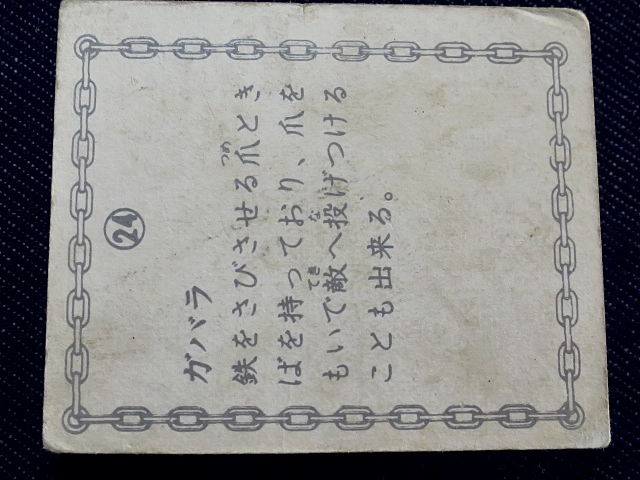 24
ガバラ
鉄をさびさせる爪とき
ばを持っており、爪を
もいで敵へ投げつける
ことも出来る。